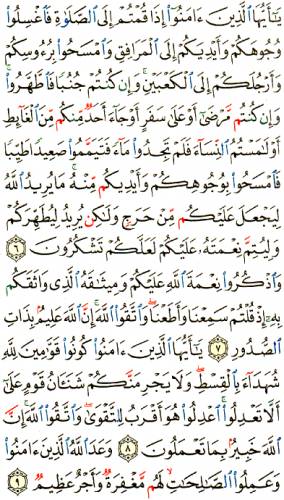 يَٰٓأَيُّهَا ٱلَّذِينَ ءَامَنُوٓا۟ إِذَا قُمْتُمْ إِلَى ٱلصَّلَوٰةِ فَٱغْسِلُوا۟
وُجُوهَكُمْ وَأَيْدِيَكُمْ إِلَى ٱلْمَرَافِقِ وَٱمْسَحُوا۟ بِرُءُوسِكُمْ
وَأَرْجُلَكُمْ إِلَى ٱلْكَعْبَيْنِ ۚ وَإِن كُنتُمْ جُنُبًا فَٱطَّهَّرُوا۟ ۚ
وَإِن كُنتُم مَّرْضَىٰٓ أَوْ عَلَىٰ سَفَرٍ أَوْ جَآءَ أَحَدٌ مِّنكُم مِّنَ ٱلْغَآئِطِ
أَوْ لَٰمَسْتُمُ ٱلنِّسَآءَ فَلَمْ تَجِدُوا۟ مَآءً فَتَيَمَّمُوا۟ صَعِيدًا طَيِّبًا
فَٱمْسَحُوا۟ بِوُجُوهِكُمْ وَأَيْدِيكُم مِّنْهُ ۚ مَا يُرِيدُ ٱللَّهُ
لِيَجْعَلَ عَلَيْكُم مِّنْ حَرَجٍ وَلَٰكِن يُرِيدُ لِيُطَهِّرَكُمْ
وَلِيُتِمَّ نِعْمَتَهُۥ عَلَيْكُمْ لَعَلَّكُمْ تَشْكُرُونَ ٦
وَٱذْكُرُوا۟ نِعْمَةَ ٱللَّهِ عَلَيْكُمْ وَمِيثَٰقَهُ ٱلَّذِى وَاثَقَكُم
بِهِۦٓ إِذْ قُلْتُمْ سَمِعْنَا وَأَطَعْنَا ۖ وَٱتَّقُوا۟ ٱللَّهَ ۚ إِنَّ ٱللَّهَ عَلِيمٌۢ بِذَاتِ
ٱلصُّدُورِ ٧ يَٰٓأَيُّهَا ٱلَّذِينَ ءَامَنُوا۟ كُونُوا۟ قَوَّٰمِينَ لِلَّهِ
شُهَدَآءَ بِٱلْقِسْطِ ۖ وَلَا يَجْرِمَنَّكُمْ شَنَـَٔانُ قَوْمٍ عَلَىٰٓ
أَلَّا تَعْدِلُوا۟ ۚ ٱعْدِلُوا۟ هُوَ أَقْرَبُ لِلتَّقْوَىٰ ۖ وَٱتَّقُوا۟ ٱللَّهَ ۚ إِنَّ
ٱللَّهَ خَبِيرٌۢ بِمَا تَعْمَلُونَ ٨ وَعَدَ ٱللَّهُ ٱلَّذِينَ ءَامَنُوا۟
وَعَمِلُوا۟ ٱلصَّٰلِحَٰتِ ۙ لَهُم مَّغْفِرَةٌ وَأَجْرٌ عَظِيمٌ ٩